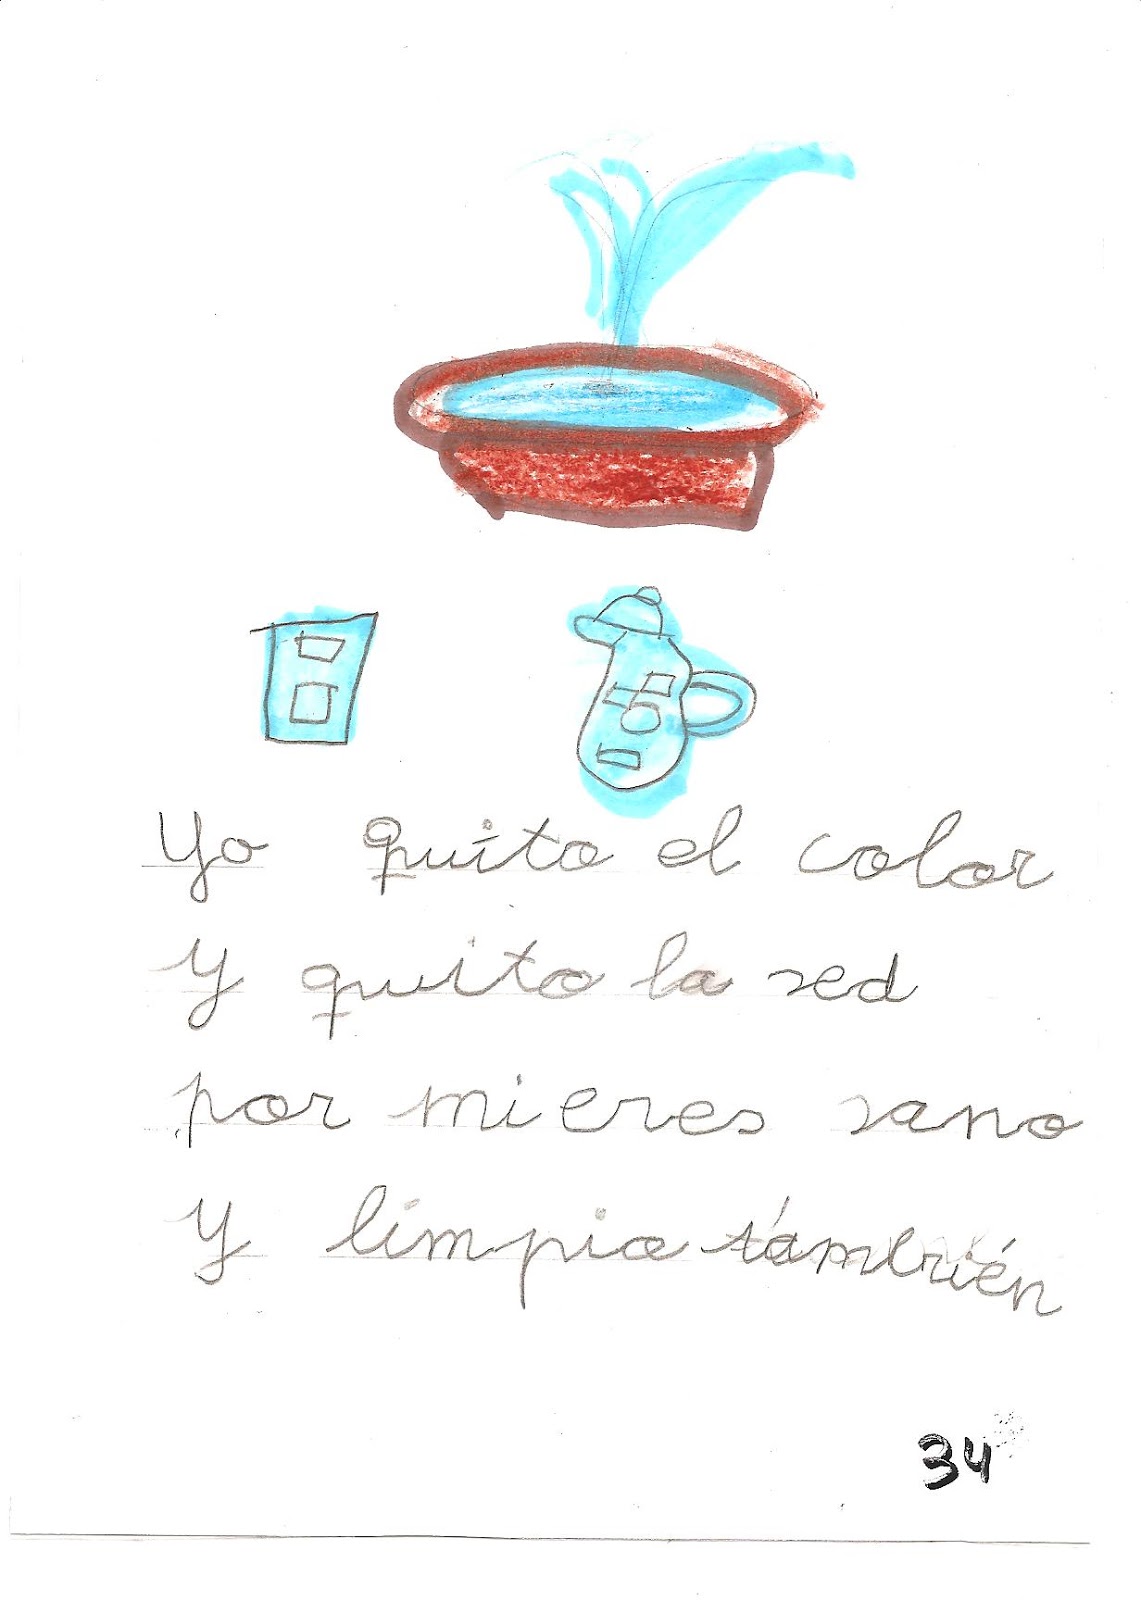 Yo quito el color
y quito la sed
por mi eres sano
y limpio también
34